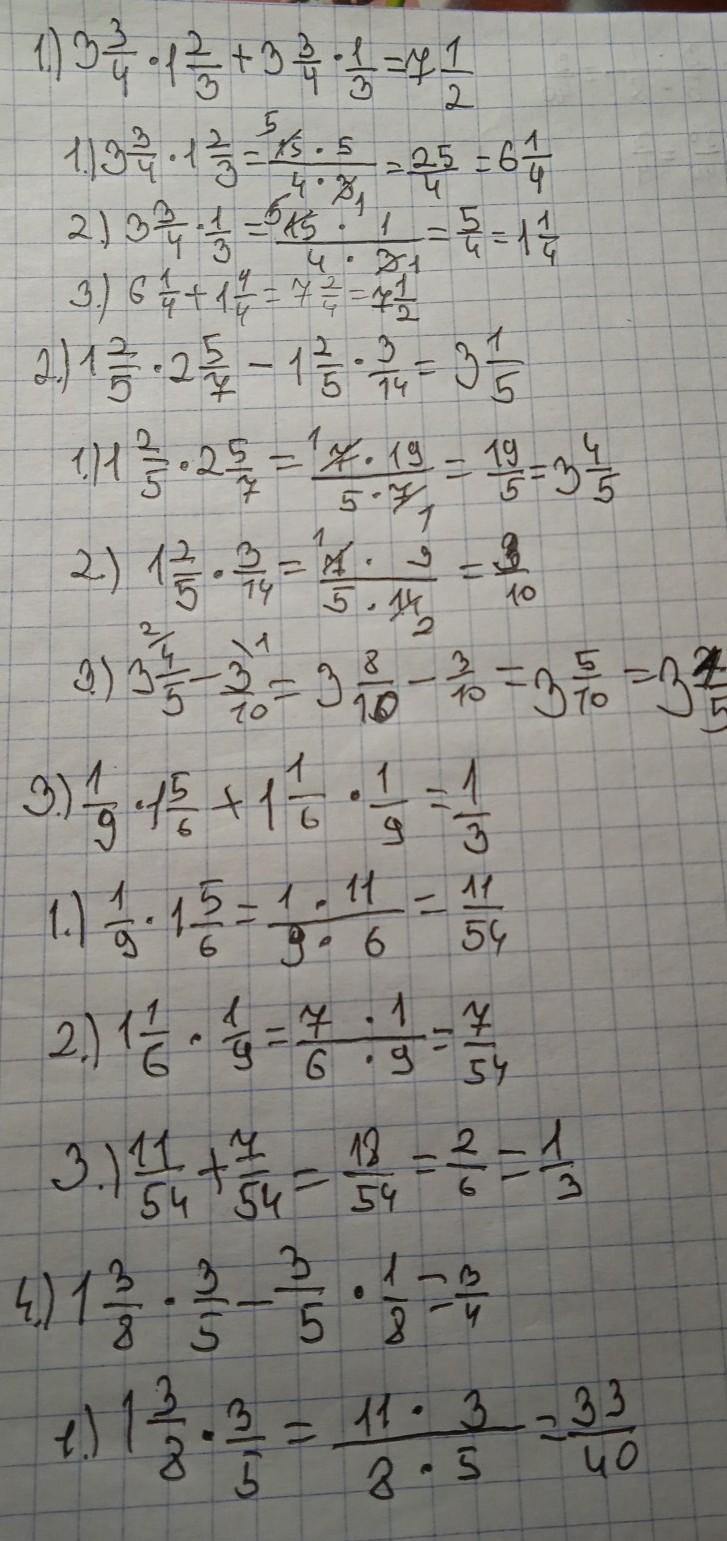 1.) 3 3/4 · 1 2/3 + 3 3/4 · 1/3 = 7 1/2
1.) 3 3/4 · 1 2/3 = 15 · 5 / 4 · 3 = 25/4 = 6 1/4
2.) 3 3/4 · 1/3 = 15 · 1 / 4 · 3 = 5/4 = 1 1/4
3.) 6 1/4 + 1 1/4 = 7 2/4 = 7 1/2
2.) 1 2/5 · 2 5/7 - 1 2/5 · 3/14 = 3 1/5
1.) 1 2/5 · 2 5/7 = 7 · 19 / 5 · 7 = 19/5 = 3 4/5
2.) 1 2/5 · 3/14 = 7 · 3 / 5 · 14 = 3/10
3.) 3 4/5 - 3/10 = 3 8/10 - 3/10 = 3 5/10 = 3
3.) 1/9 · 1 5/6 + 1 1/6 · 1/9 = 1/3
1.) 1/9 · 1 5/6 = 1 · 11 / 9 · 6 = 11/54
2.) 1 1/6 · 1/9 = 7 · 1 / 6 · 9 = 7/54
3.) 11/54 + 7/54 = 18/54 = 2/6 = 1/3
4.) 1 3/8 · 3/5 - 3/5 · 1/8 = 3/4
1.) 1 3/8 · 3/5 = 11 · 3 / 8 · 5 = 33/40